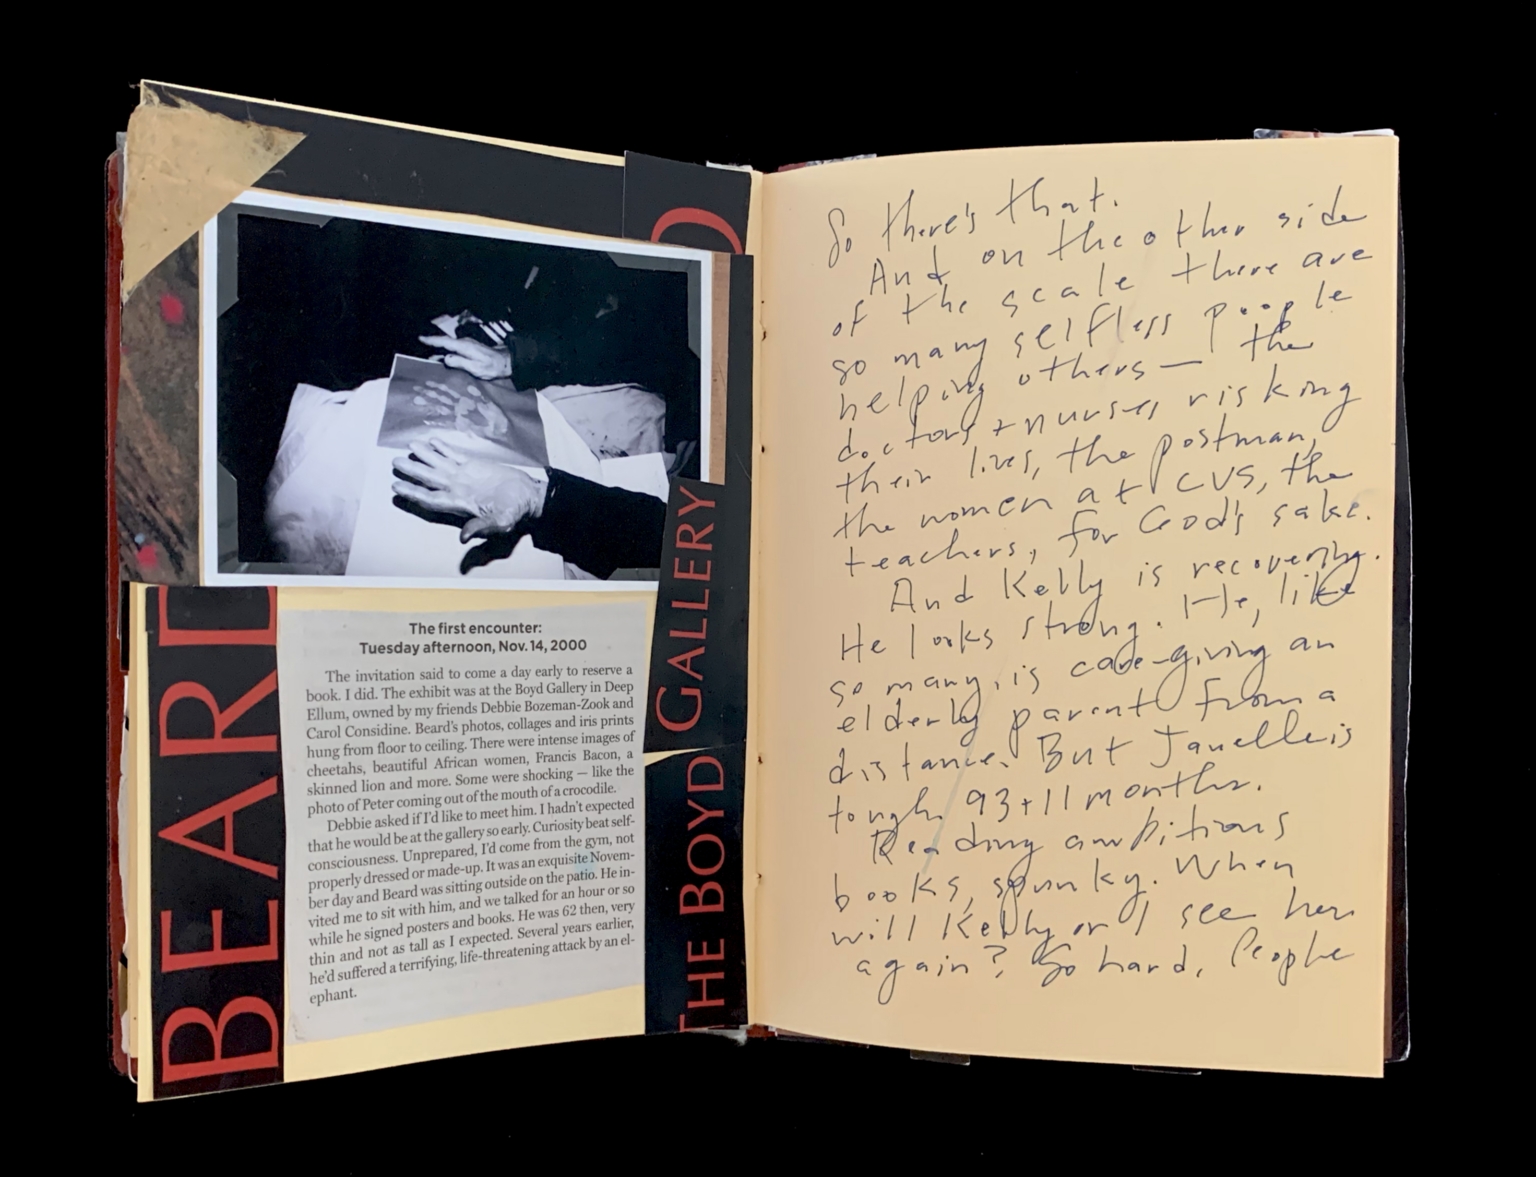 BEARD
THE BOYD GALLERY
The first encounter:
Tuesday afternoon, Nov. 14, 2000
The invitation said to come a day early to reserve a
book. I did. The exhibit was at the Boyd Gallery in Deep
Ellum, owned by my friends Debbie Bozeman-Zook and
Carol Considine. Beard's photos, collages and iris prints
hung from floor to ceiling. There were intense images of
cheetahs, beautiful African women, Francis Bacon, a
skinned lion and more. Some were shocking — like the
photo of Peter coming out of the mouth of a crocodile.
Debbie asked if I'd like to meet him. I hadn't expected
that he would be at the gallery so early. Curiosity beat self-
consciousness. Unprepared, I'd come from the gym, not
properly dressed or made-up. It was an exquisite Novem-
ber day and Beard was sitting outside on the patio. He in-
vited me to sit with him, and we talked for an hour or so
while he signed posters and books. He was 62 then, very
thin and not as tall as I expected. Several years earlier,
he'd suffered a terrifying, life-threatening attack by an el-
ephant.
So there's that.
And on the other side
of the scale there are
so many selfless people
helping others — the
doctors + nurses risking
their lives, the postman,
the women at CVS, the
teachers, for God's sake.
And Kelly is recovering.
He looks strong. He, like
so many, is care-giving an
elderly parent from a
distance. But Janelle is
tough. 93 + 11 months.
Reading ambitious
books, spunky. When
will Kelly or I see her
again? So hard. People